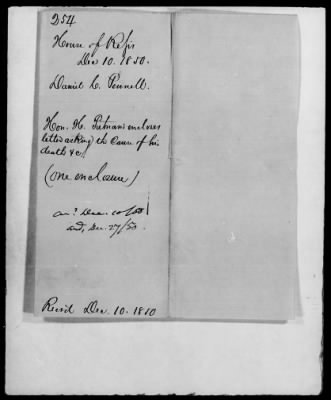 254
House of Reps
Dec 10. 1850.
Daniel C. Pennell.
Hon. H. Putnam encloses
letter asking the Cause of his
death &c.
(one enclosure)
an? Dec. 10/50
and, Dec. 27/50.
Recd Dec. 10. 1850